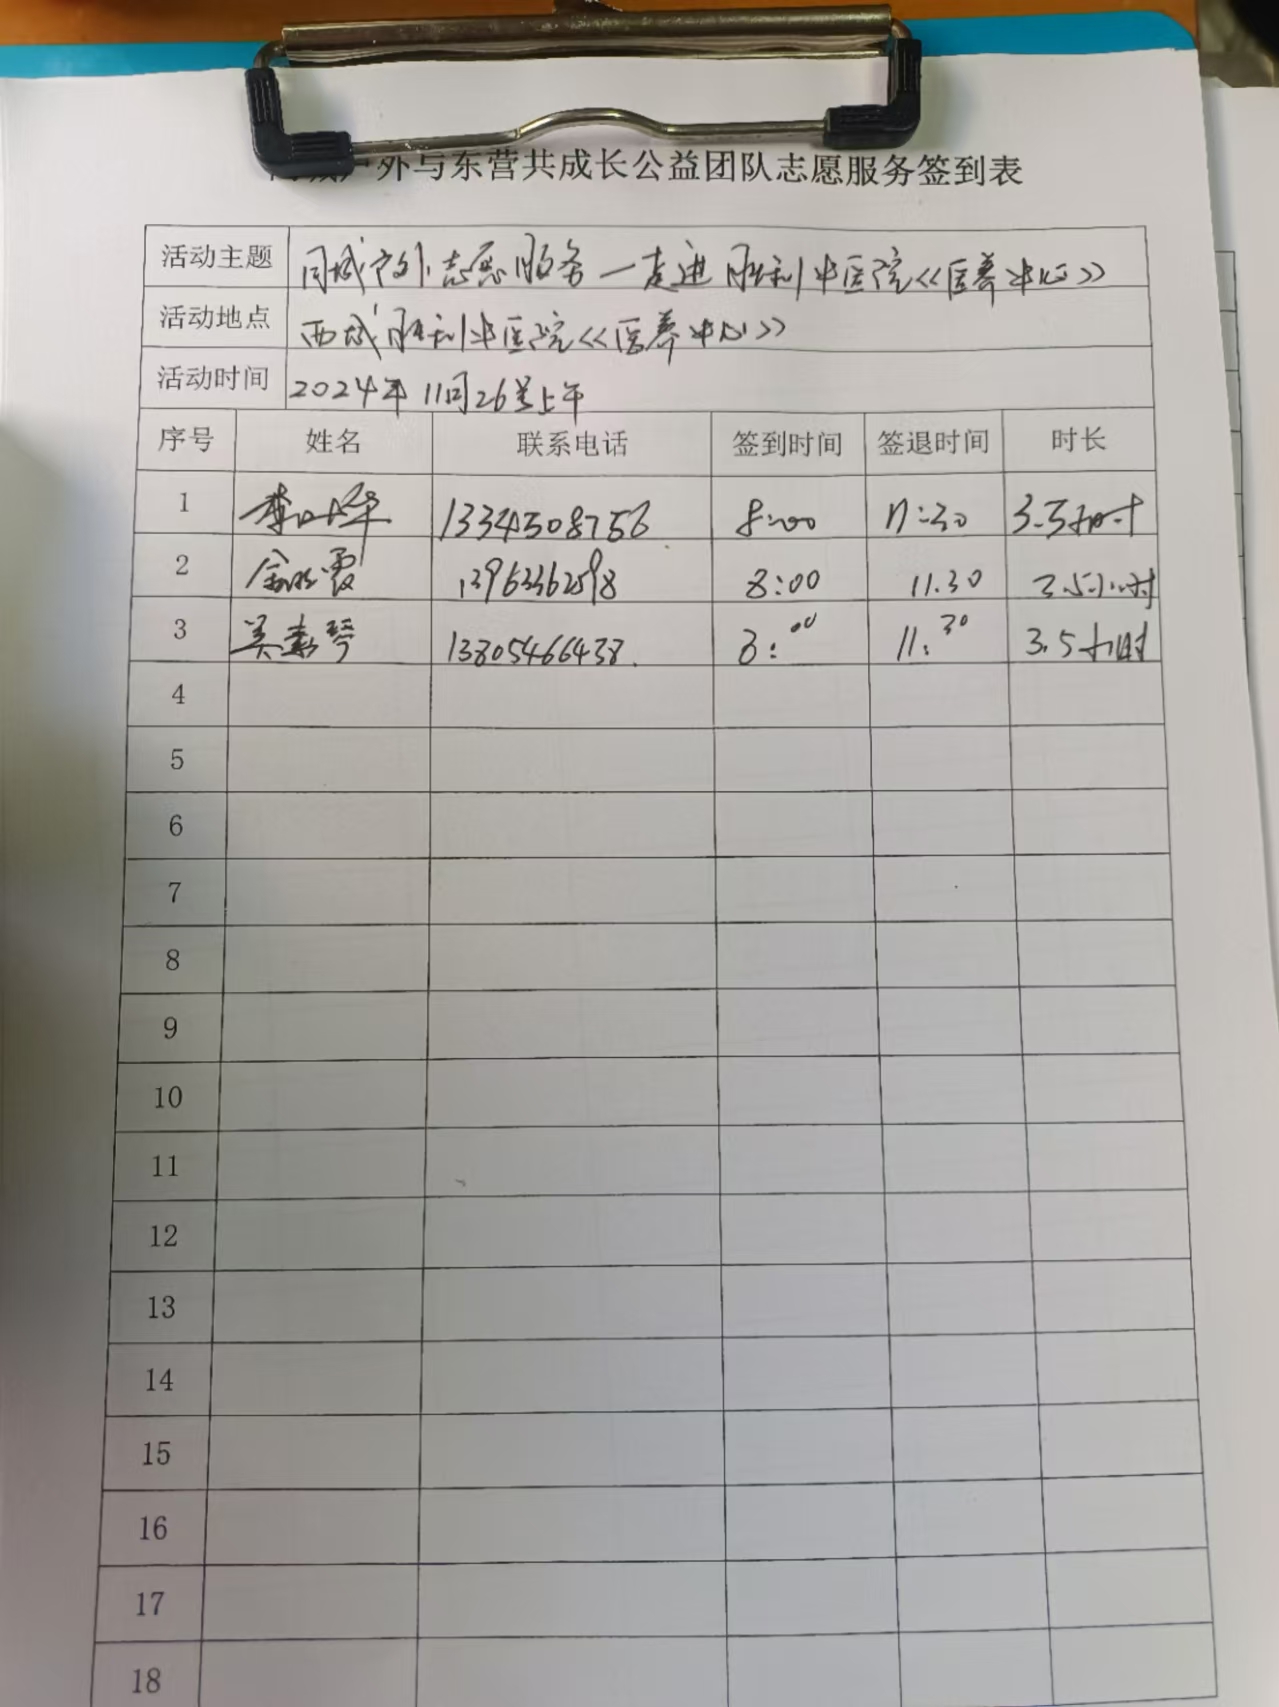 户外与东营共成长公益团队志愿服务签到表
活动主题 同城户外志愿服务一走进胜利中医院《医养中心》
活动地点 西城胜利中医院《医养中心》
活动时间 2024年11月26号上午
序号 姓名 联系电话 签到时间 签退时间 时长
1 李 华 13345308756 8:00 11:30 3.5小时
2 霞 13963362598 8:00 11.30 3.5小时
3 吴素琴 13805466438. 8:00 11:30 3.5小时
4
5
6
7
8
9
10
11
12
13
14
15
16
17
18